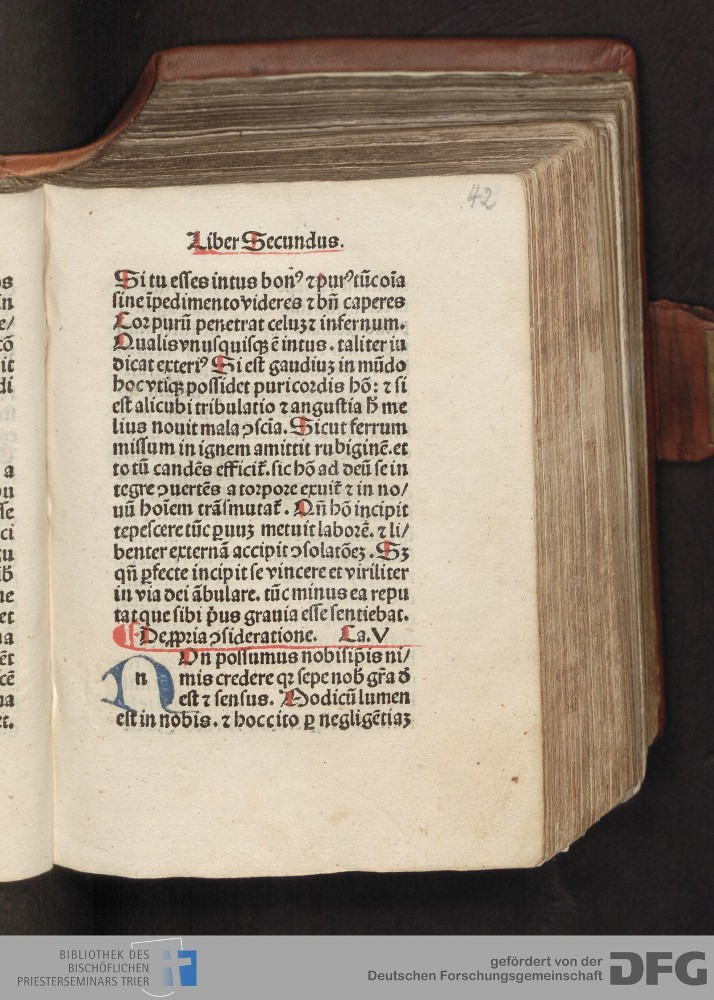 42
Liber Secundus.
Si tu eſſes intus bonꝰ ⁊ purꝰ tūc oīa
ſine īpedimento videres ⁊ bn̄ caperes
Cor purū penetrat celuꝫ ⁊ infernum.
Qualis vnuſquiſqꝫ ē intus. taliter iu
dicat exteriꝰ Si eſt gaudiuꝫ in mūdo
hoc vtiqꝫ poſſidet puri cordis hō: ⁊ ſi
eſt alicubi tribulatio ⁊ anguſtia h̄ me
lius nouit mala ↄſcīa. Sicut ferrum
miſſum in ignem amittit rubiginē. et
totū candēs efficit̄. ſic hō ad deū ſe in
tegre ↄuertēs a torpore exuit̄ ⁊ in no/
uū hoīem trāſmutat̄. Qn̄ hō incipit
tepeſcere tūc ꝑuuꝫ metuit laborē. ⁊ li/
benter externā accipit ↄſolatōeꝫ. Sꝫ
qn̄ ꝑfecte incipit ſe vincere et viriliter
in via dei ābulare. tūc minus ea repu
tat que ſibi p̄us grauia eſſe ſentiebat.
De ꝓpria ↄſideratione. Ca. V
n
On poſſumus nobiſip̄is ni/
mis credere qꝛ ſepe nob̄ gr̄a d̄
eſt ⁊ ſenſus. Modicū lumen
eſt in nobis. ⁊ hoc cito ꝑ negligētiaꝫ
BIBLIOTHEK DES
BISCHÖFLICHEN
PRIESTERSEMINARS TRIER
gefördert von der
Deutschen Forschungsgemeinschaft
DFG